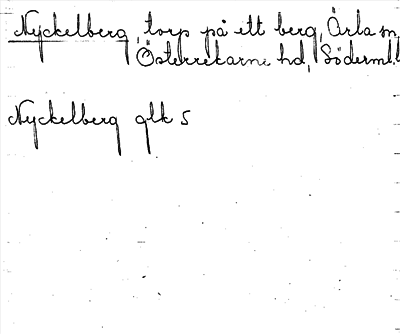 Nyckelberg, torp på ett berg, Ärla sn,
Österrekarne hd, Söderml.l
Nyckelberg glk 5